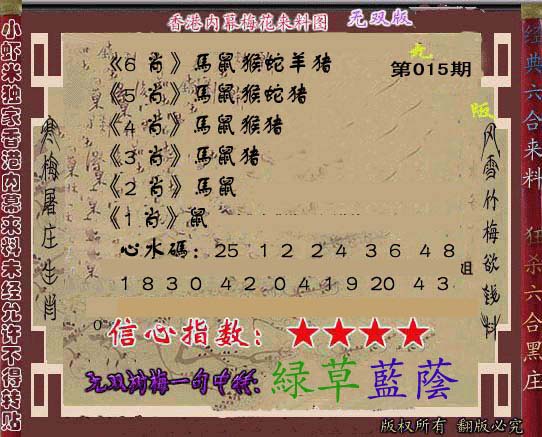 香港内幕梅花来料图 无双版
无
第015期
版
《6 肖》馬鼠猴蛇羊猪
《5 肖》馬鼠猴蛇猪
《4 肖》馬鼠猴猪
《3 肖》馬鼠猪
《2 肖》馬鼠
《1 肖》鼠
心水碼：25 12 24 36 48
18 30 42 04 19 20 43
信心指数：★★★★
緑草藍蔭
版权所有 翻版必究
小虾米独家香港内幕来料未经允许不得转贴
寒梅屠庄生肖
风雪竹梅欲钱料
经典六合来料 狂杀六合黑庄